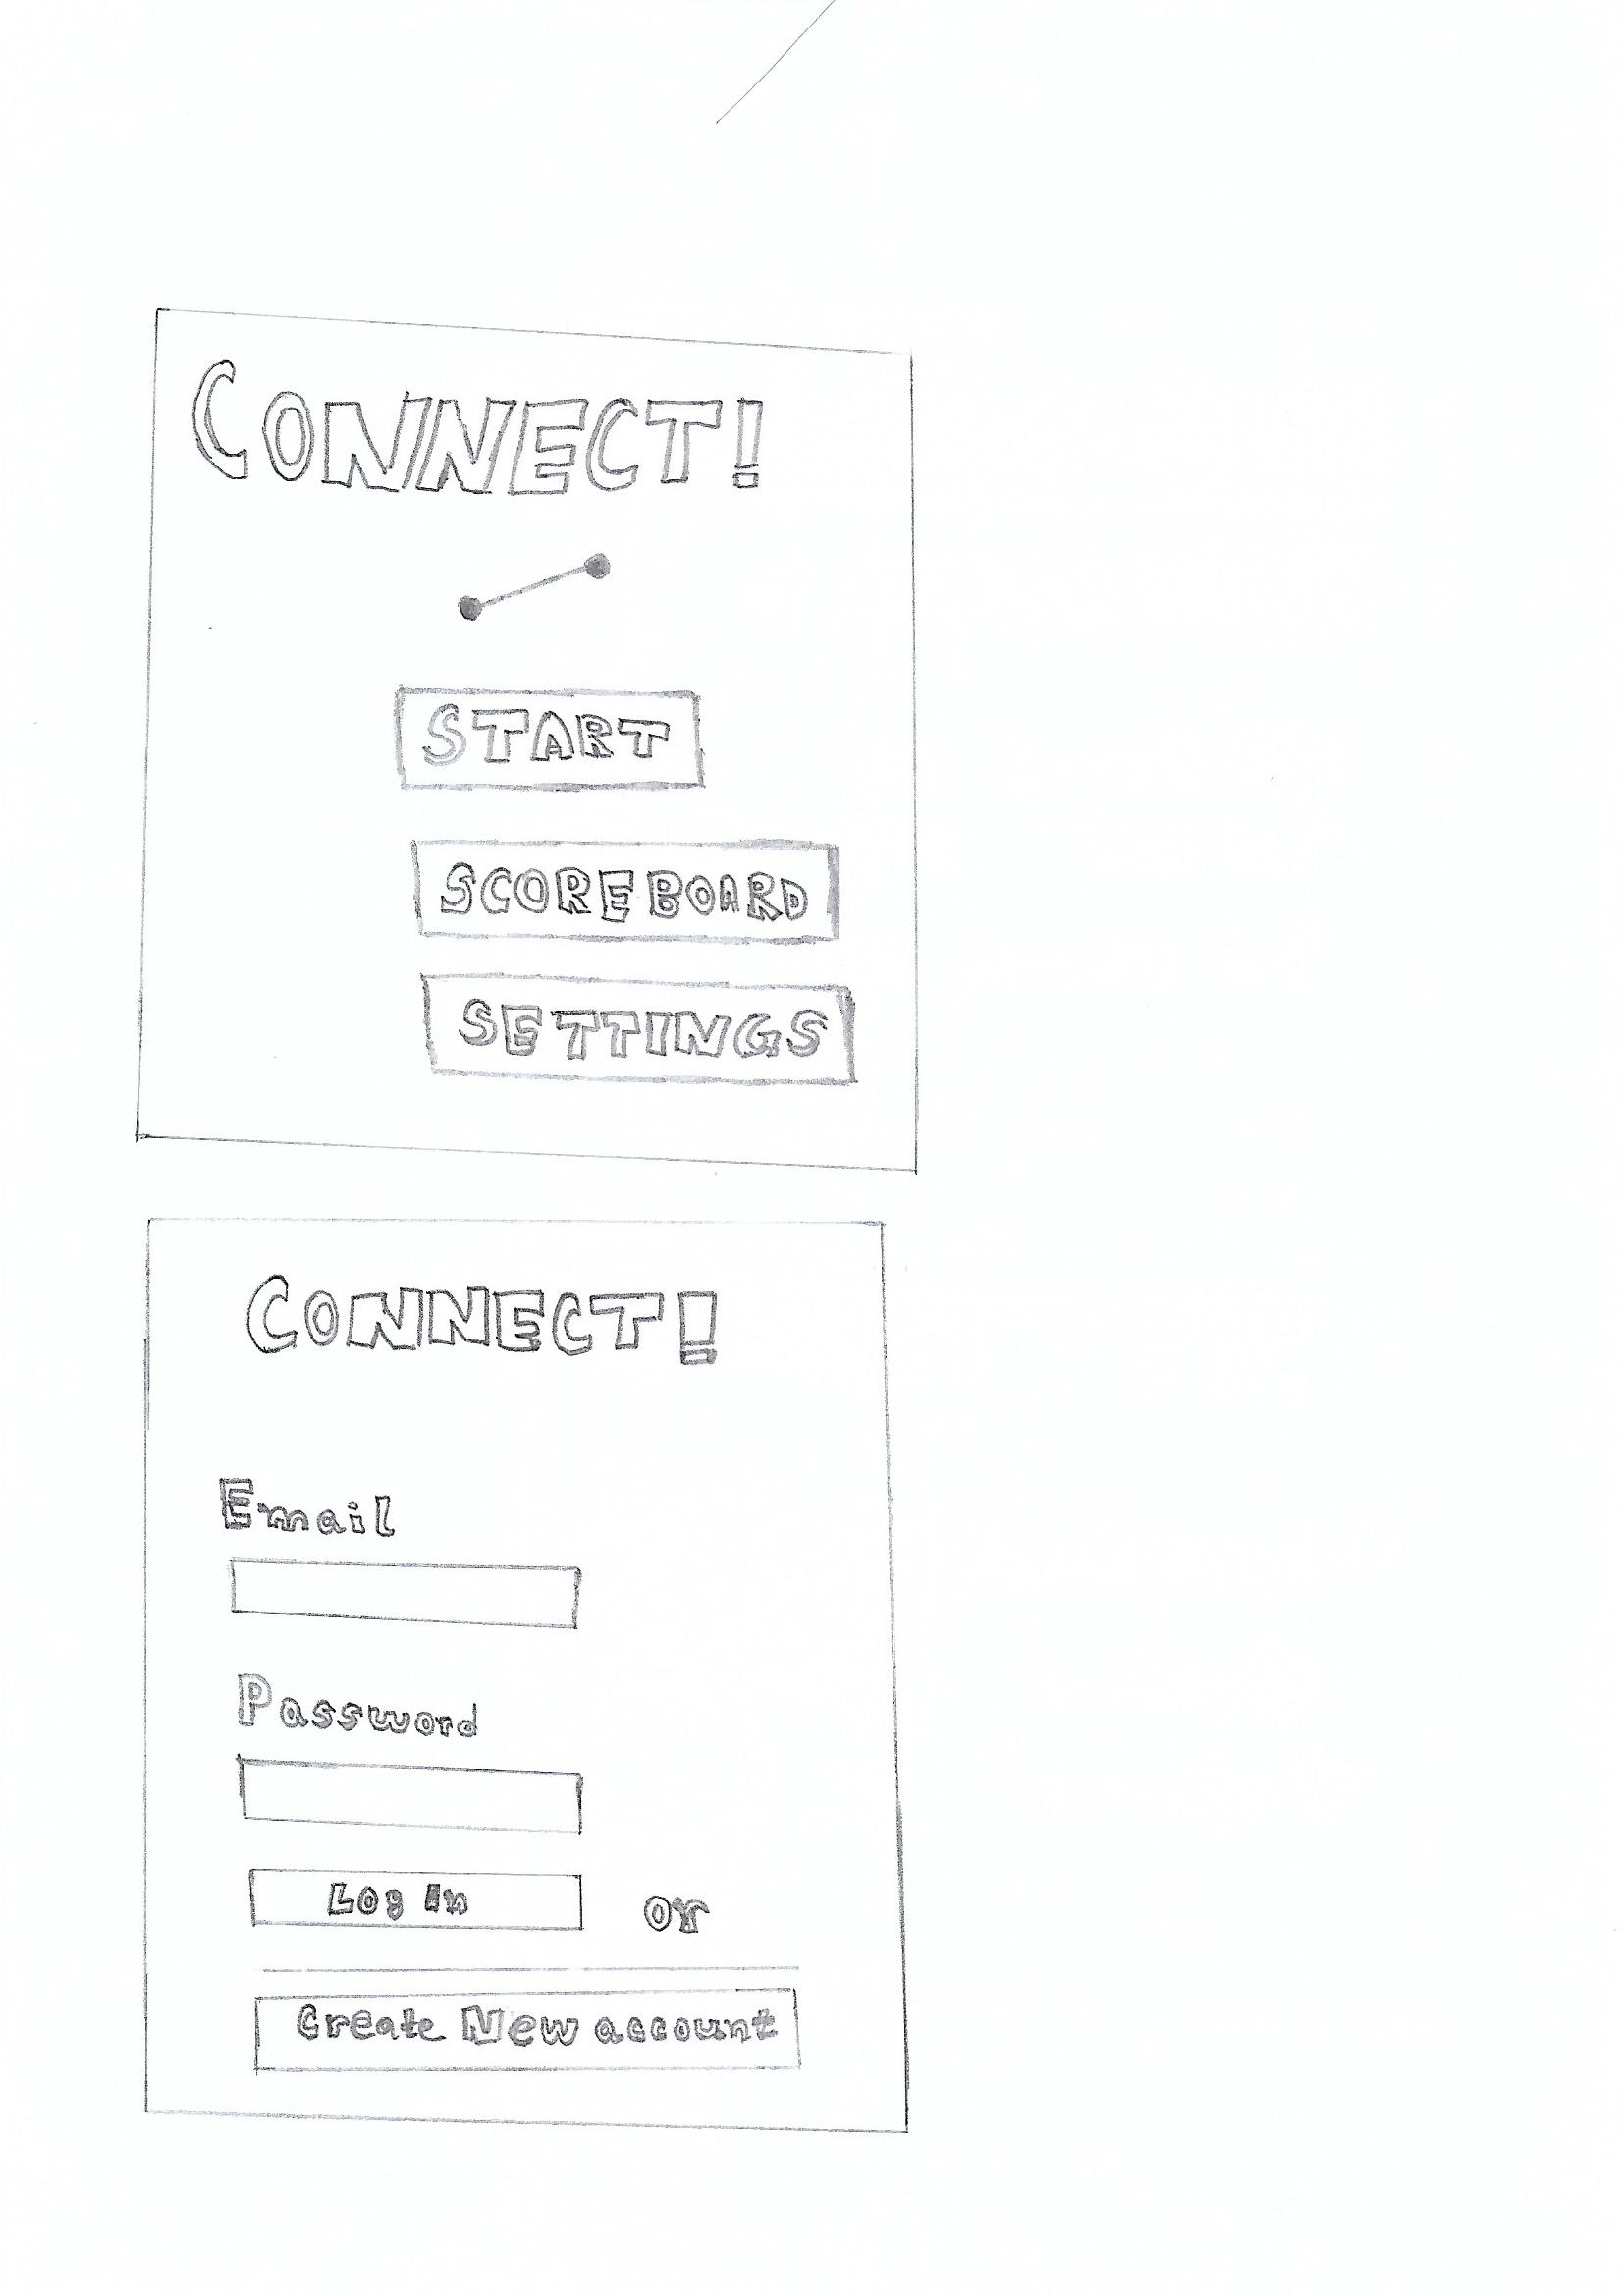 CONNECT!
START
SCOREBOARD
SETTINGS
CONNECT!
Email
Password
Log In or
Create New account